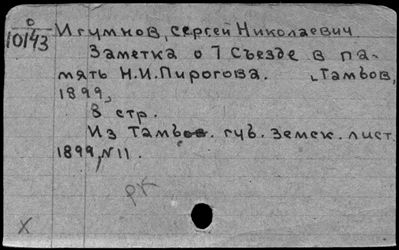 0
10143
Игумнов, Сергей Николаевич
Заметка о 7 съезде в па-
мять Н.И.Пирогова. Тамбов,
1899,
8 стр.
Из Тамбов. губ. земск. лист.
1899, N11.
рк
X